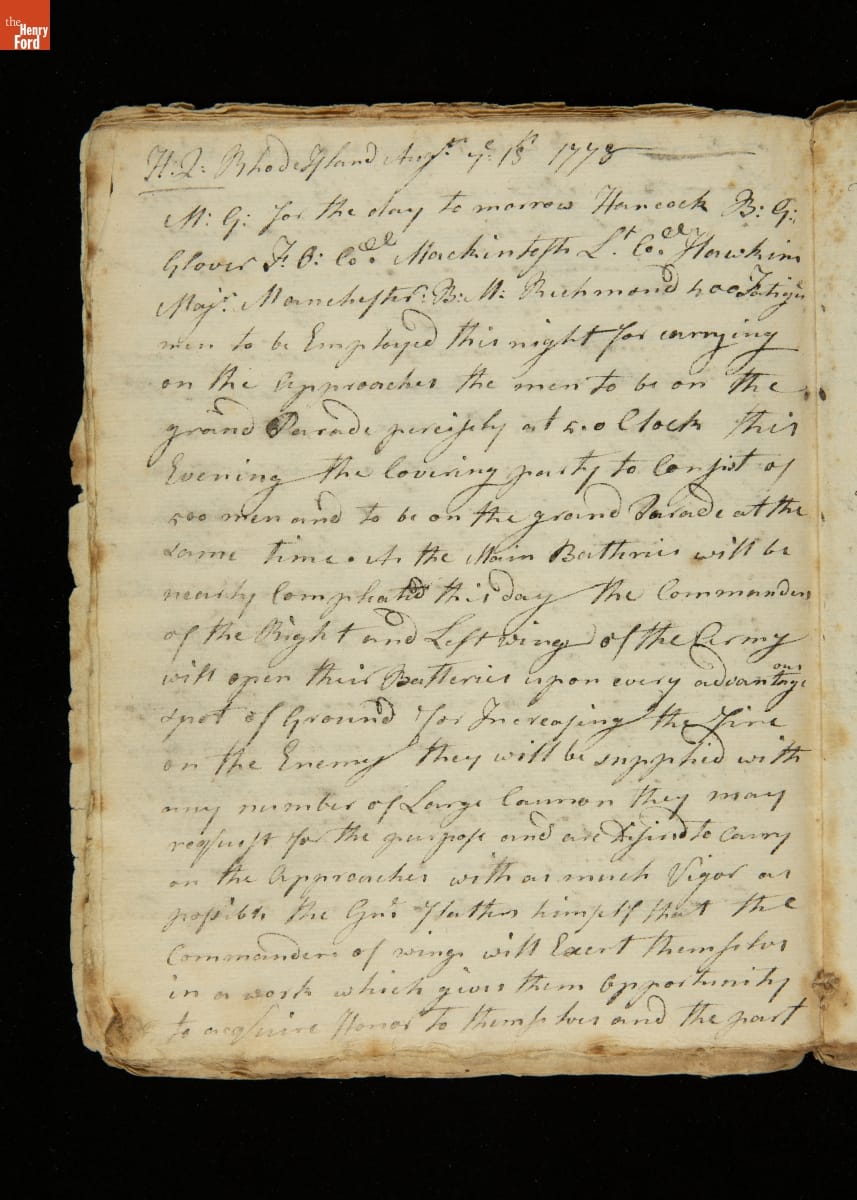 the
Henry
Ford
H: Q: Rhode Island Augst. ye. 18th 1778
M: G: for the day to morrow Hancock B: G:
Glover F: O: Coll. Mackintosh Lt. Coll. Hawkins
Majr. Manchester: B: M: Richmond 400 Fatigue
men to be Employed this night for carrying
on the Approaches the men to be on the
grand Parade percisely at 5. o Clock this
Evening the Covering party to Consist of
500 men and to be on the grand Parade at the
same time. As the Main Batteries will be
nearly Compleated this day the Commanders
of the Right and Left wings of the Army
will open their Batteries upon every advantageous
spot of Ground for Increasing the Fire
on the Enemy they will be supplied with
any number of Large Cannon they may
request for the purpose and are Desired to Carry
on the Approaches with as much Vigor as
possible the Genl flatters himself that the
Commanders of wings will Exert themselves
in a work which gives them Opportunity
to acquire Honor to themselves and the part